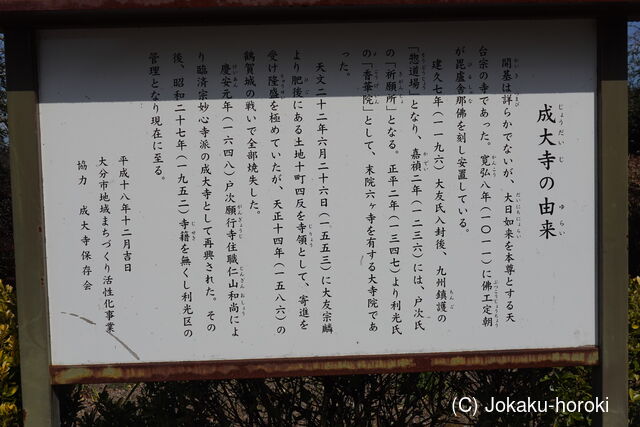 成大寺の由来
開基は詳らかでないが、大日如来を本尊とする天
台宗の寺であった。寛弘八年(一〇一一)に佛工定朝
が毘盧舎那佛を刻し安置している。
建久七年(一一九六)大友氏入封後、九州鎮護の
「惣道場」となり、嘉禎二年(一二三六)には、戸次氏
の「祈願所」となる。正平二年(一三四七)より利光氏
の「香華院」として、末院六ヶ寺を有する大寺院であ
った。
天文二十二年六月二十六日(一五五三)に大友宗麟
より肥後にある土地十町四反を寺領として、寄進を
受け隆盛を極めていたが、天正十四年(一五八六)の
鶴賀城の戦いで全部焼失した。
慶安元年(一六四八)戸次願行寺住職仁山和尚によ
り臨済宗妙心寺派の成大寺として再興された。その
後、昭和二十七年(一九五二)寺籍を無くし利光区の
管理となり現在に至る。
平成十八年十二月吉日
大分市地域まちづくり活性化事業
協力 成大寺保存会
(C) Jokaku-horoki